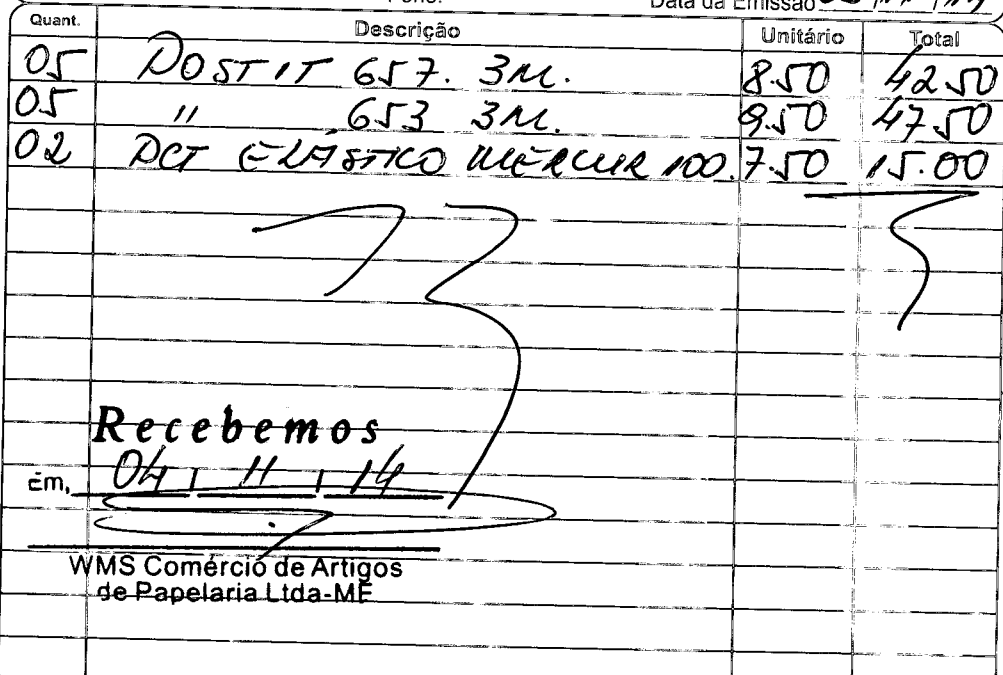 Data da Emissão
Quant. Descrição Unitário Total
05 POST IT 657. 3M. 8.50 42.50
05 " 653 3M. 9.50 47.50
02 PCT ELÁSTICO MERCUR 100. 7.50 15.00
Recebemos
Em, 04 / 11 / 14
WMS Comércio de Artigos
de Papelaria Ltda-ME